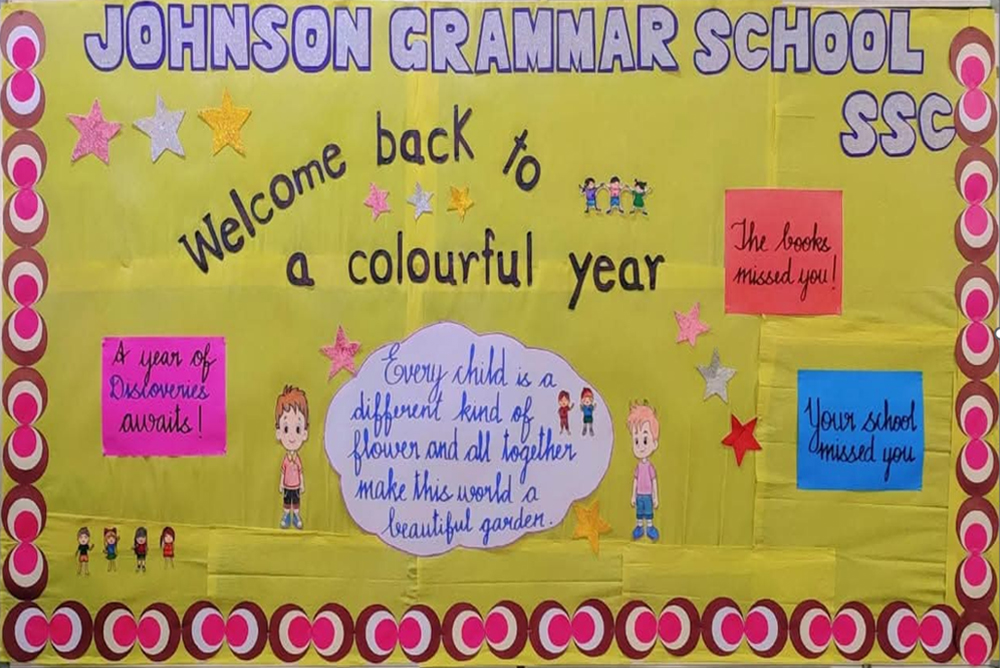 JOHNSON GRAMMAR SCHOOL
SSC
Welcome back to
a colourful year
The books
missed you!
A year of
Discoveries
awaits!
Every child is a
different kind of
flower and all together
make this world a
beautiful garden.
Your school
missed you